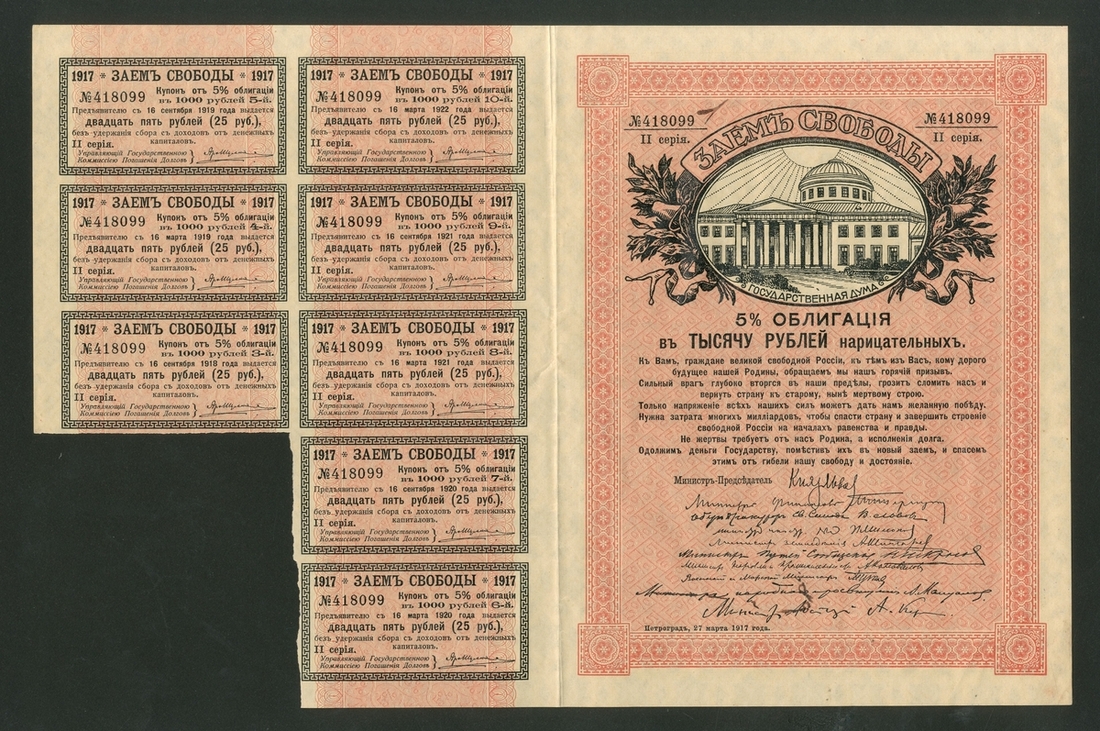 1917 * ЗАЕМЪ СВОБОДЫ * 1917
№418099
Купонъ отъ 5% облигаціи
въ 1000 рублей 5-й.
Предъявителю съ 16 сентября 1919 года выдается
двадцать пять рублей (25 руб.),
безъ удержанія сбора съ доходовъ отъ денежныхъ
капиталовъ.
II серія.
Управляющій Государственною
Коммиссіею Погашенія Долговъ
1917 * ЗАЕМЪ СВОБОДЫ * 1917
№418099
Купонъ отъ 5% облигаціи
въ 1000 рублей 4-й.
Предъявителю съ 16 марта 1919 года выдается
двадцать пять рублей (25 руб.),
безъ удержанія сбора съ доходовъ отъ денежныхъ
капиталовъ.
II серія.
Управляющій Государственною
Коммиссіею Погашенія Долговъ
1917 * ЗАЕМЪ СВОБОДЫ * 1917
№418099
Купонъ отъ 5% облигаціи
въ 1000 рублей 3-й.
Предъявителю съ 16 сентября 1918 года выдается
двадцать пять рублей (25 руб.),
безъ удержанія сбора съ доходовъ отъ денежныхъ
капиталовъ.
II серія.
Управляющій Государственною
Коммиссіею Погашенія Долговъ
1917 * ЗАЕМЪ СВОБОДЫ * 1917
№418099
Купонъ отъ 5% облигаціи
въ 1000 рублей 10-й.
Предъявителю съ 16 марта 1922 года выдается
двадцать пять рублей (25 руб.),
безъ удержанія сбора съ доходовъ отъ денежныхъ
капиталовъ.
II серія.
Управляющій Государственною
Коммиссіею Погашенія Долговъ
1917 * ЗАЕМЪ СВОБОДЫ * 1917
№418099
Купонъ отъ 5% облигаціи
въ 1000 рублей 9-й.
Предъявителю съ 16 сентября 1921 года выдается
двадцать пять рублей (25 руб.),
безъ удержанія сбора съ доходовъ отъ денежныхъ
капиталовъ.
II серія.
Управляющій Государственною
Коммиссіею Погашенія Долговъ
1917 * ЗАЕМЪ СВОБОДЫ * 1917
№418099
Купонъ отъ 5% облигаціи
въ 1000 рублей 8-й.
Предъявителю съ 16 марта 1921 года выдается
двадцать пять рублей (25 руб.),
безъ удержанія сбора съ доходовъ отъ денежныхъ
капиталовъ.
II серія.
Управляющій Государственною
Коммиссіею Погашенія Долговъ
1917 * ЗАЕМЪ СВОБОДЫ * 1917
№418099
Купонъ отъ 5% облигаціи
въ 1000 рублей 7-й.
Предъявителю съ 16 сентября 1920 года выдается
двадцать пять рублей (25 руб.),
безъ удержанія сбора съ доходовъ отъ денежныхъ
капиталовъ.
II серія.
Управляющій Государственною
Коммиссіею Погашенія Долговъ
1917 * ЗАЕМЪ СВОБОДЫ * 1917
№418099
Купонъ отъ 5% облигаціи
въ 1000 рублей 6-й.
Предъявителю съ 16 марта 1920 года выдается
двадцать пять рублей (25 руб.),
безъ удержанія сбора съ доходовъ отъ денежныхъ
капиталовъ.
II серія.
Управляющій Государственною
Коммиссіею Погашенія Долговъ
№418099
II серія.
№418099
II серія.
ЗАЕМЪ СВОБОДЫ
ГОСУДАРСТВЕННАЯ ДУМА
5% ОБЛИГАЦІЯ
въ ТЫСЯЧУ РУБЛЕЙ нарицательныхъ.
Къ Вамъ, граждане великой свободной Россіи, къ тѣмъ изъ Васъ, кому дорого
будущее нашей Родины, обращаемъ мы нашъ горячій призывъ.
Сильный врагъ глубоко вторгся въ наши предѣлы, грозитъ сломить насъ и
вернуть страну къ старому, нынѣ мертвому строю.
Только напряженіе всѣхъ нашихъ силъ можетъ дать намъ желанную побѣду.
Нужна затрата многихъ милліардовъ, чтобы спасти страну и завершить строеніе
свободной Россіи на началахъ равенства и правды.
Не жертвы требуетъ отъ насъ Родина, а исполненія долга.
Одолжимъ деньги Государству, помѣстивъ ихъ въ новый заемъ, и спасемъ
этимъ отъ гибели нашу свободу и достояніе.
Министръ-Предсѣдатель Князь Львовъ
Министръ Финансовъ
Оберъ-Прокуроръ Св. Синода В. Львовъ
Министръ Путей Сообщенія Н. Некрасов
Военный и Морской Министръ
Министръ народнаго просвѣщенія А. Мануйловъ
Министръ Юстиціи А. Кер
Петроградъ, 27 марта 1917 года.